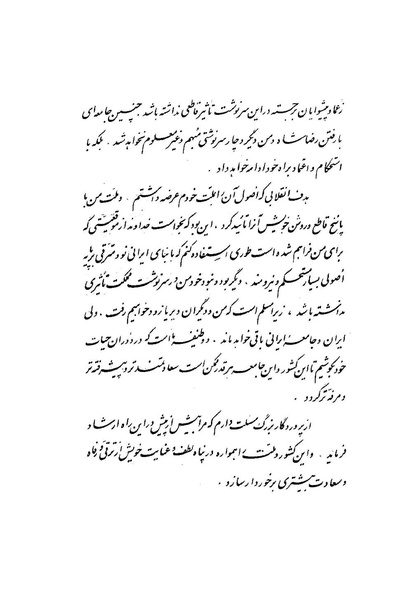 زعما و پیشوایان برجسته در این سرنوشت تأثیر قاطعی نداشته باشد. چنین جامعه‌ای
با رفتن رضاشاه و من و دیگر دچار سرنوشتی مبهم و غیر معلوم نخواهد شد. بلکه با
استحکام و اعتماد براه خود ادامه خواهد داد.
هدف انقلابی که اصول آن را بملت خودم عرضه داشتم. و ملت من با
پاسخ قاطع و روشن خویش آنرا تأئید کرد، این بود که بخواست خداوند از موقعیتی که
برای من فراهم شده است طوری استفاده کنم که بنای ایرانی نو و مترقی بر پایه
اصولی بسیار مستحکم و نیرومند. دیگر بود و نبود خود من در سرنوشت مملکت تأثیری
نداشته باشد، زیرا مسلم است که من و دیگران دیر یا زود خواهیم رفت. ولی
ایران و جامعه ایرانی باقی خواهد ماند. و وظیفه ما است که در دوران حیات
خود بکوشیم تا این کشور و این جامعه هر قدر ممکن است سعادتمندتر و پیشرفته‌تر
و مرفه‌تر گردد.
از پروردگار بزرگ مسئلت دارم که مرا بیش از پیش در این راه ارشاد
فرماید. و این کشور و ملت را همواره در پناه لطف و عنایت خویش از ترقی و رفاه
و سعادت بیشتری برخوردار سازد.